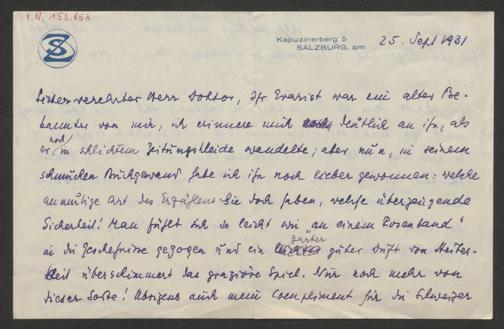 I.N. 153.653
SZ
Kapuzinerberg 5
SALZBURG, am 25. Sept 1931
Lieber verehrter Herr Doktor, Ihr Evarist war ein alter Be-
kannter von mir, ich erinnere mich deutlich an ihn, als
er noch in schlichtem Zeitungskleide wandelte; aber nun, in seinem
schmucken Buchgewand habe ich ihn noch lieber gewonnen: welche
anmutige Art des Erzählens Sie doch haben, welche überzeugende
Sicherheit! Man fühlt sich so leicht wie "an einem Rosenband"
in die Geschehnisse gezogen und ein zarter guter Duft von Heiter-
keit überschimmert das graziöse Spiel. Nur noch mehr von
dieser Sorte! Übrigens auch mein Compliment für die Schweizer